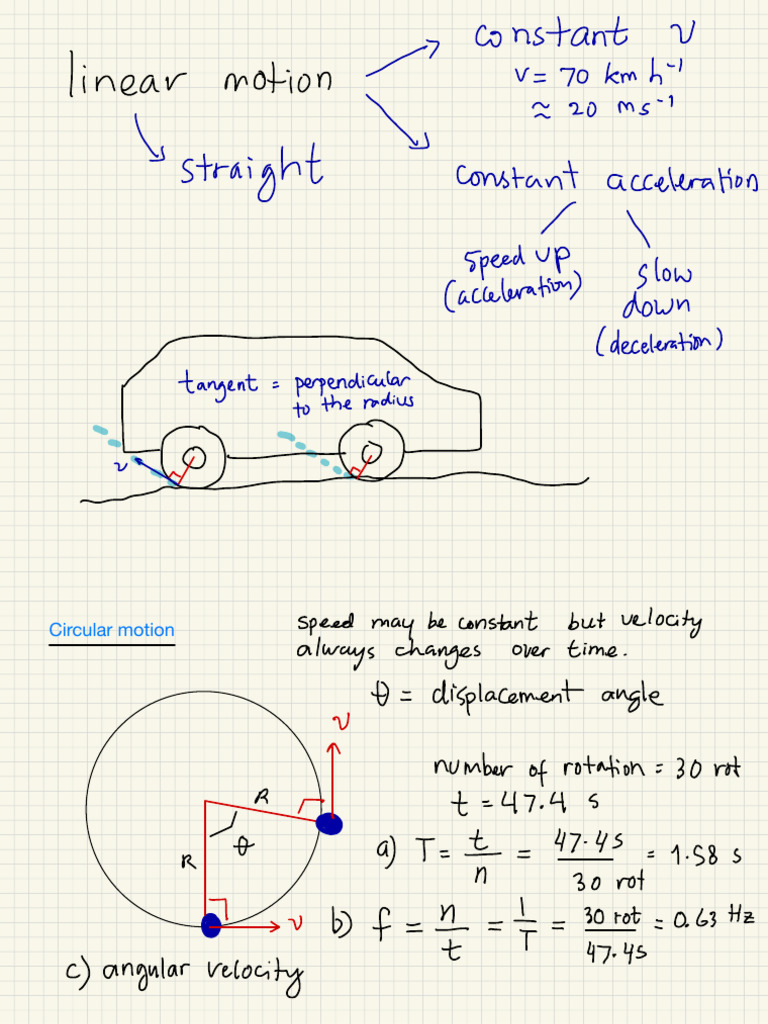 linear motion
straight
constant v
v = 70 km h⁻¹
≈ 20 ms⁻¹
constant acceleration
speed up
(acceleration)
slow
down
(deceleration)
tangent = perpendicular
to the radius
v
Circular motion
speed may be constant but velocity
always changes over time.
θ = displacement angle
v
R
R
θ
v
number of rotation = 30 rot
t = 47.4 s
a) T = t/n = 47.4s/30 rot = 1.58 s
b) f = n/t = 1/T = 30 rot/47.4s = 0.63 Hz
c) angular velocity